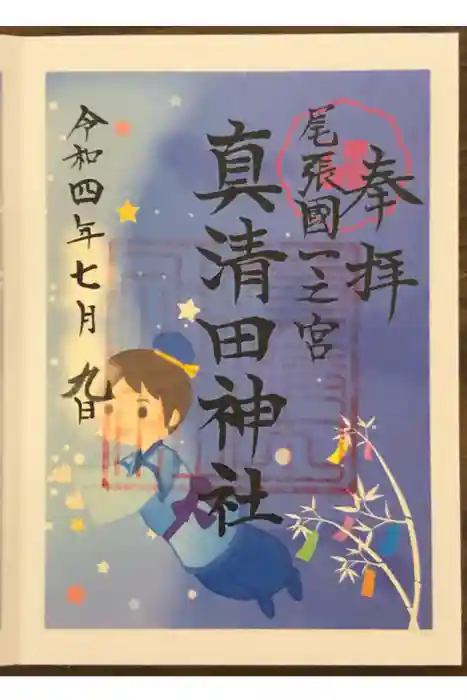 奉拝
尾張國一之宮
真清田神社
令和四年七月九日